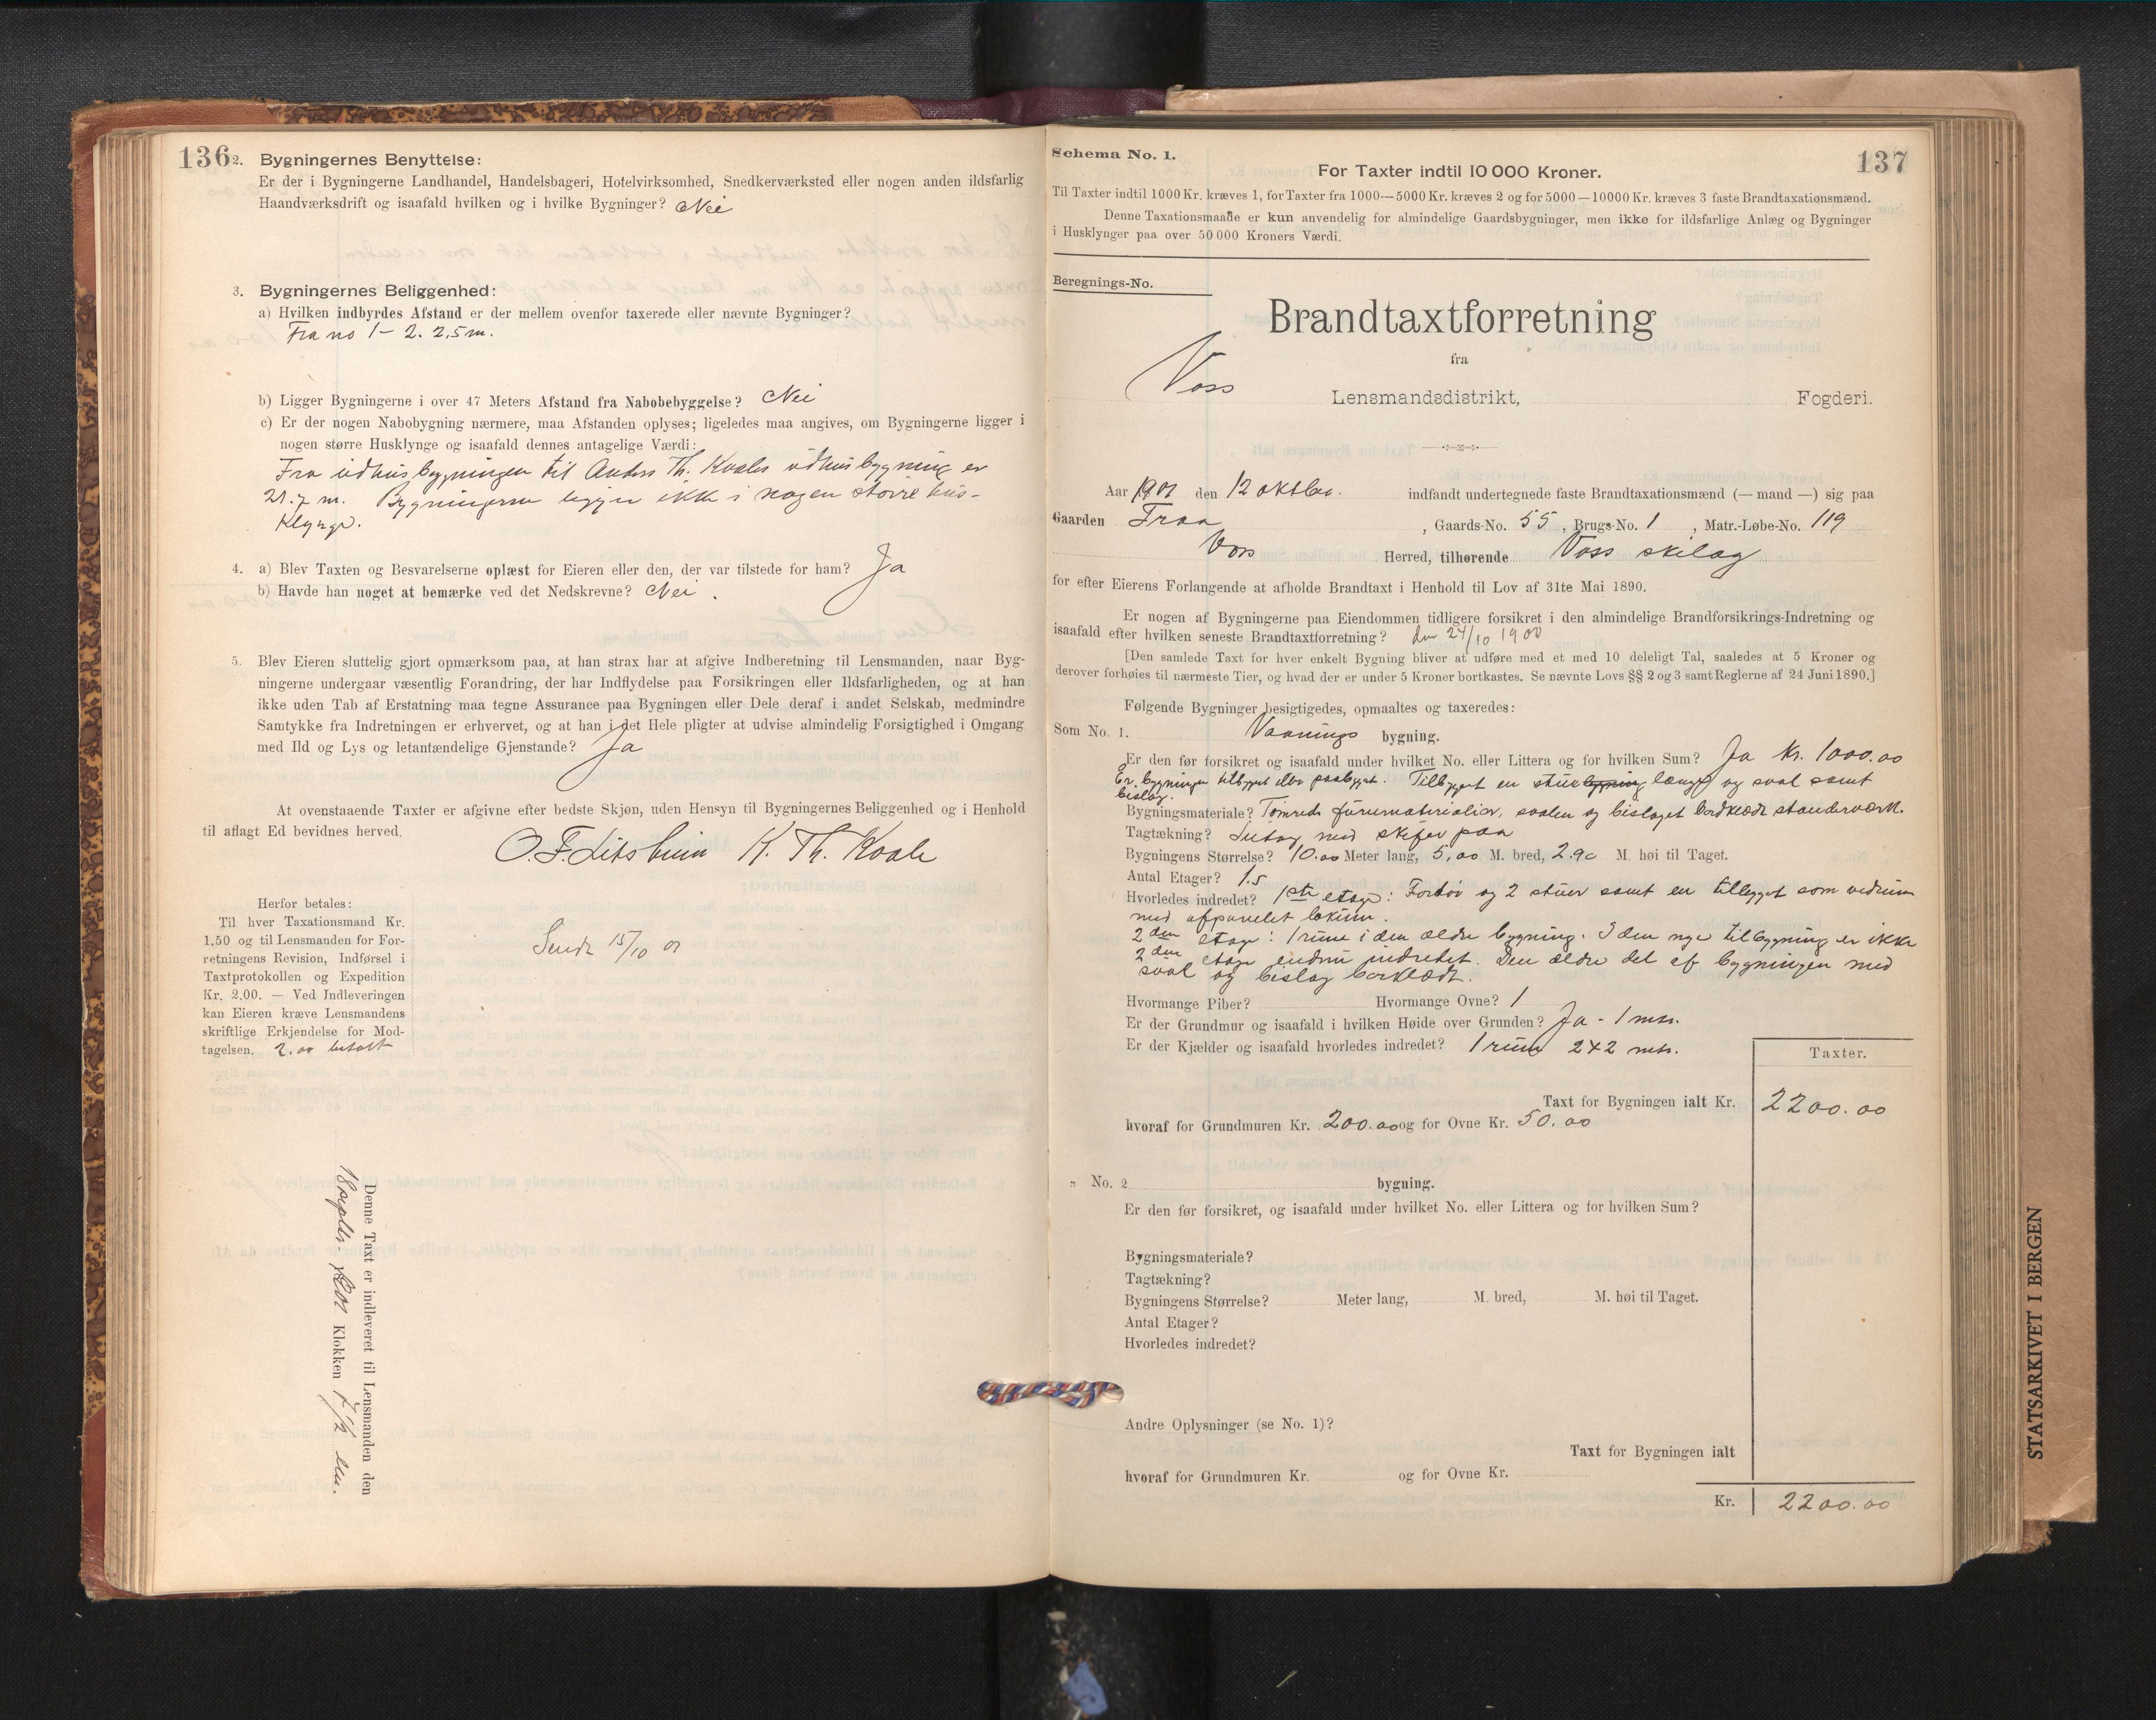 136
2. Bygningernes Benyttelse:
Er der i Bygningerne Landhandel, Handelsbageri, Hotelvirksomhed, Snedkerværksted eller nogen anden ildsfarlig
Haandværksdrift og isaafald hvilken og i hvilke Bygninger? Nei
3. Bygningernes Beliggenhed:
a) Hvilken indbyrdes Afstand er der mellem ovenfor taxerede eller nævnte Bygninger?
Fra no 1 - 2. 2,5 m.
b) Ligger Bygningerne i over 47 Meters Afstand fra Nabobebyggelse? Nei
c) Er der nogen Nabobygning nærmere, maa Afstanden oplyses; ligeledes maa angives, om Bygningerne ligger i
nogen større Husklynge og isaafald dennes antagelige Værdi:
Fra udhusbygningen til Anders Th. Kvales udhusbygning er
21.7 m. Bygningerne ligger ikke i nogen større hus-
klynge.
4. a) Blev Taxten og Besvarelserne oplæst for Eieren eller den, der var tilstede for ham? Ja
b) Havde han noget at bemærke ved det Nedskrevne? Nei.
5. Blev Eieren sluttelig gjort opmærksom paa, at han strax har at afgive Indberetning til Lensmanden, naar Byg-
ningerne undergaar væsentlig Forandring, der har Indflydelse paa Forsikringen eller Ildsfarligheden, og at han
ikke uden Tab af Erstatning maa tegne Assurance paa Bygningen eller Dele deraf i andet Selskab, medmindre
Samtykke fra Indretningen er erhvervet, og at han i det Hele pligter at udvise almindelig Forsigtighed i Omgang
med Ild og Lys og letantændelige Gjenstande? Ja
At ovenstaaende Taxter er afgivne efter bedste Skjøn, uden Hensyn til Bygningernes Beliggenhed og i Henhold
til aflagt Ed bevidnes herved.
O. F. K. Th. Kvale
Herfor betales:
Til hver Taxationsmand Kr.
1,50 og til Lensmanden for For-
retningens Revision, Indførsel i
Taxtprotokollen og Expedition
Kr. 2.00. — Ved Indleveringen
kan Eieren kræve Lensmandens
skriftlige Erkjendelse for Mod-
tagelsen. 2.00 betalt
Sendt 15/10 01
Denne Taxt er indleveret til Lensmanden den
18 septbr. 1901 Klokken 7 1/2 em.
Schema No. 1.
137
For Taxter indtil 10 000 Kroner.
Til Taxter indtil 1000 Kr. kræves 1, for Taxter fra 1000—5000 Kr. kræves 2 og for 5000—10000 Kr. kræves 3 faste Brandtaxationsmænd.
Denne Taxationsmaade er kun anvendelig for almindelige Gaardsbygninger, men ikke for ildsfarlige Anlæg og Bygninger
i Husklynger paa over 50 000 Kroners Værdi.
Beregnings-No.
Brandtaxtforretning
fra
Voss Lensmandsdistrikt, Fogderi.
Aar 1901 den 12 oktbr. indfandt undertegnede faste Brandtaxationsmænd (— mand —) sig paa
Gaarden Traa, Gaards-No. 55, Brugs-No. 1, Matr.-Løbe-No. 119
Voss Herred, tilhørende Voss skilag
for efter Eierens Forlangende at afholde Brandtaxt i Henhold til Lov af 31te Mai 1890.
Er nogen af Bygningerne paa Eiendommen tidligere forsikret i den almindelige Brandforsikrings-Indretning og
isaafald efter hvilken seneste Brandtaxtforretning? den 24/10 1900
[Den samlede Taxt for hver enkelt Bygning bliver at udføre med et med 10 deleligt Tal, saaledes at 5 Kroner og
derover forhøies til nærmeste Tier, og hvad der er under 5 Kroner bortkastes. Se nævnte Lovs §§ 2 og 3 samt Reglerne af 24 Juni 1890.]
Følgende Bygninger besigtigedes, opmaaltes og taxeredes:
Som No. 1. Vaanings bygning.
Er den før forsikret og isaafald under hvilket No. eller Littera og for hvilken Sum? Ja Kr. 1000.00
Er bygningen tilbygget eller paabygget. Tilbygget en stue længde og sval samt
bislag.
Bygningsmateriale? Tømrede furumaterialier, svalen og bislaget bordklædt standerværk.
Tagtækning? Sutag med skifer paa
Bygningens Størrelse? 10.00 Meter lang, 5,00 M. bred, 2.90 M. høi til Taget.
Antal Etager? 1.5
Hvorledes indredet? 1ste etage: Fordør og 2 stuer samt en tillegget som vedrum
med afpanelet lokum.
2den etage: 1 rum i den ældre bygning. I den nye tilbygning er ikke
2den etage endnu indredet. Den ældre del af bygningen med
sval og bislag bordklædt.
Hvormange Piber? Hvormange Ovne? 1
Er der Grundmur og isaafald i hvilken Høide over Grunden? Ja - 1 mtr.
Er der Kjælder og isaafald hvorledes indredet? 1 rum 2x2 mtr.
Taxter.
Taxt for Bygningen ialt Kr. 2200.00
hvoraf for Grundmuren Kr. 200.00 og for Ovne Kr. 50.00
" No. 2 bygning.
Er den før forsikret, og isaafald under hvilket No. eller Littera og for hvilken Sum?
Bygningsmateriale?
Tagtækning?
Bygningens Størrelse? Meter lang, M. bred, M. høi til Taget.
Antal Etager?
Hvorledes indredet?
Andre Oplysninger (se No. 1)?
Taxt for Bygningen ialt
hvoraf for Grundmuren Kr. og for Ovne Kr.
Kr. 2200.00
STATSARKIVET I BERGEN